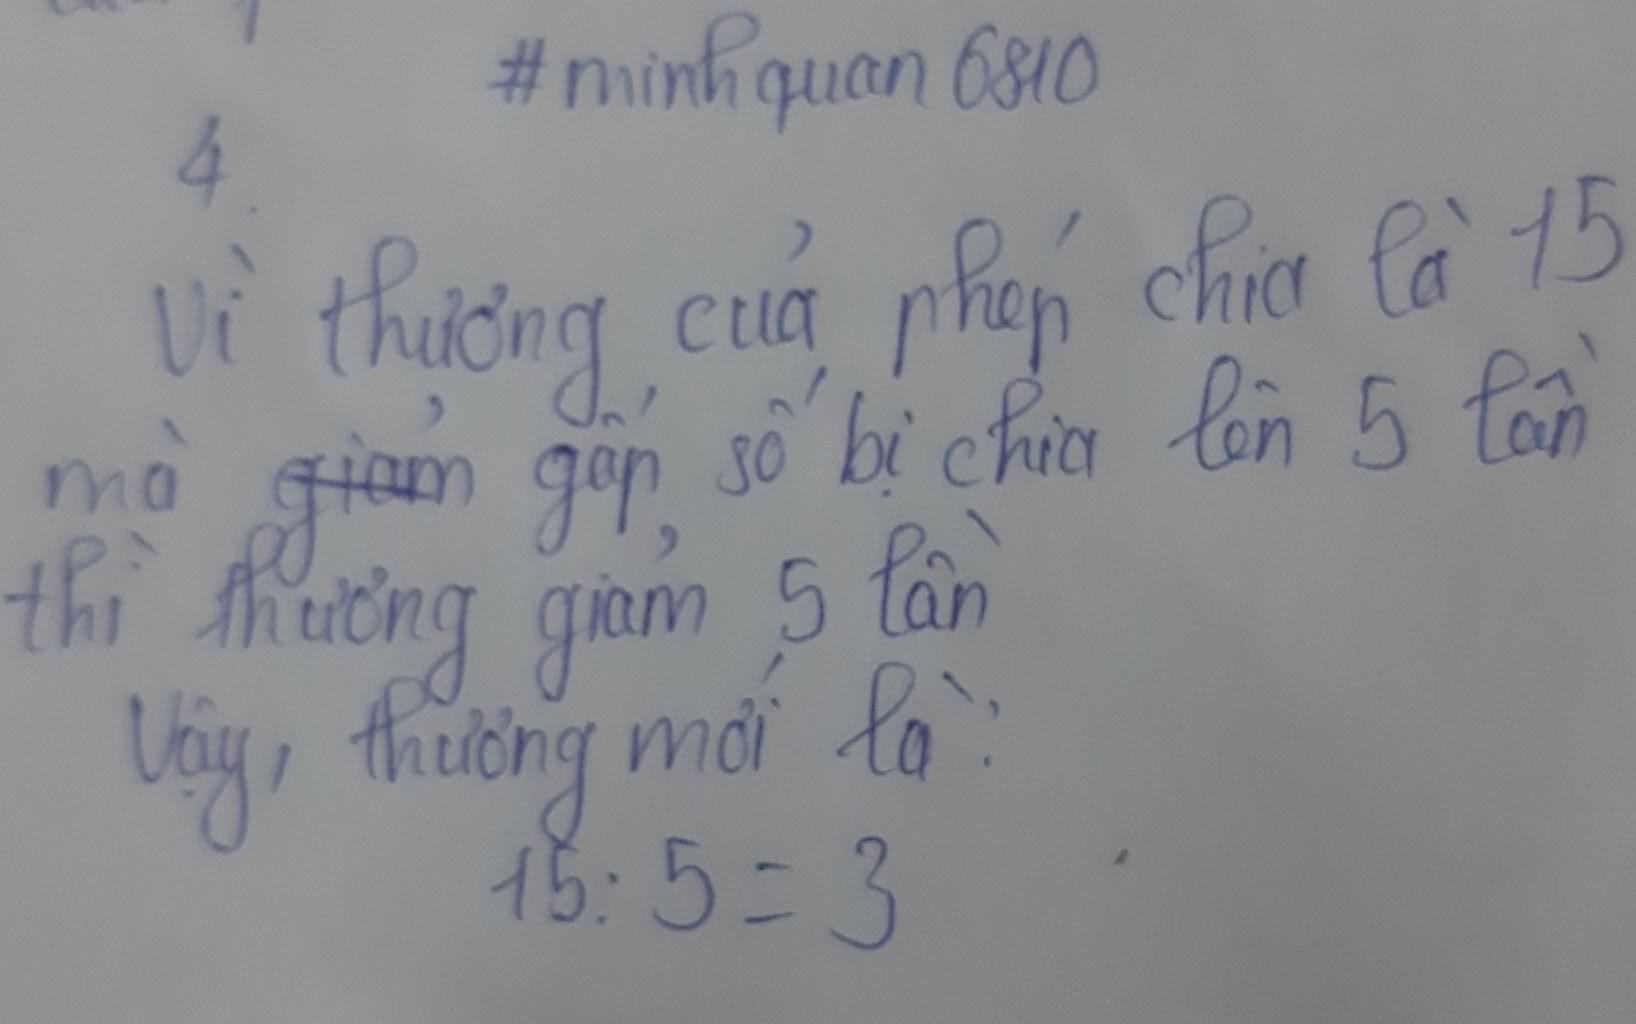 #minhquan6810
4.
Vì thương của phép chia là 15
mà giảm gấp số bị chia lên 5 lần
thì thương giảm 5 lần
Vậy, thương mới là:
15:5=3